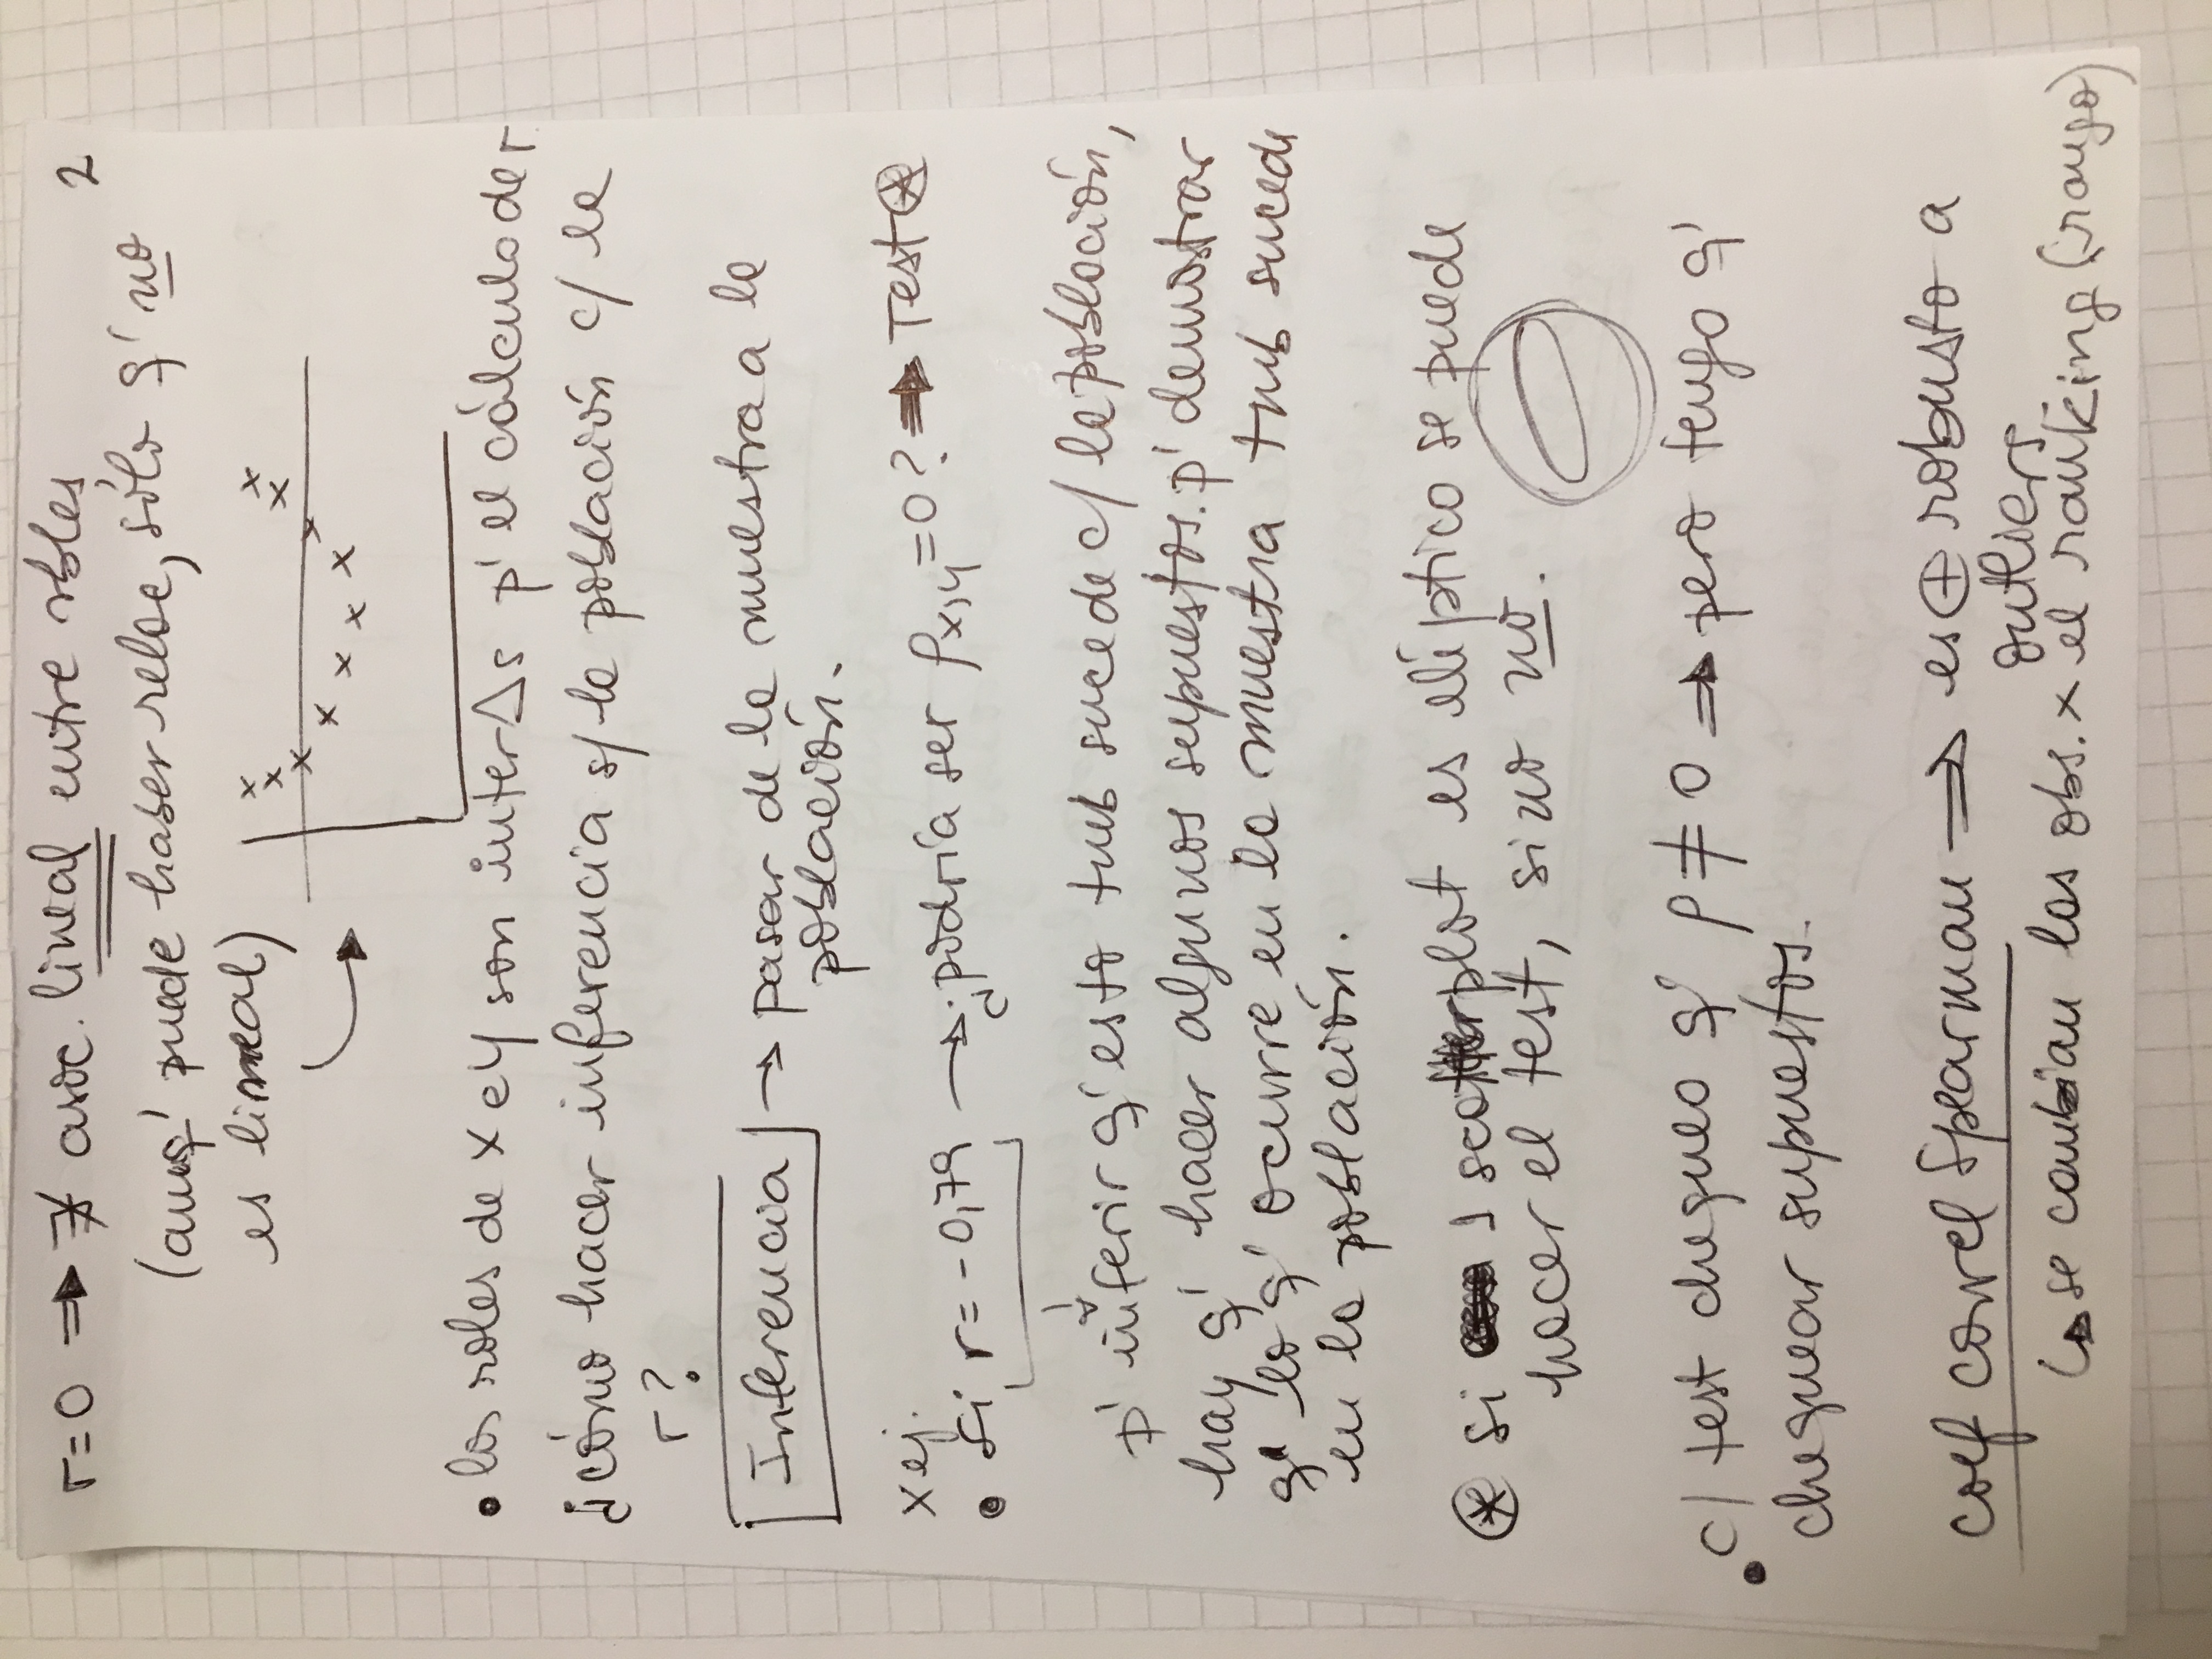 r=0 ⇒ ∄ asoc. lineal entre vbles 2
(aunq' puede haber relac, sólo q' no
es lineal)
• los roles de x e y son inter∆s p' el cálculo de r
¿cómo hacer inferencia s/ la población c/ la
r?
Inferencia → pasar de la muestra a la
población.
x ej.
• si r = -0,79 → ¿podría ser ρx,y = 0? ⇒ Test ⊛
p' inferir q' esto tmb sucede c/ la población,
hay q' hacer algunos supuestos. p' demostrar
q' lo q' ocurre en la muestra tmb sucede
en la población.
⊛ si 1 scatterplot es elíptico se puede
hacer el test, sino no.
• c/ test chequeo q' ρ ≠ 0 ⇒ pero tengo q'
chequear supuestos.
coef correl Spearman ⇒ es ⊕ robusto a
outliers.
↳ se cambian las obs. x el ranking (rango)